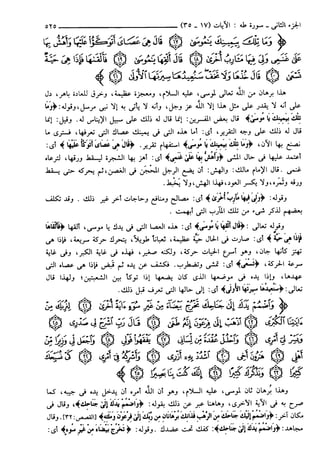 الجزء الثاني - سورة طه : الآيات (١٧ - ٣٥)
٥٢٥
﴿وَمَا تِلْكَ بِيَمِينِكَ يَمُوسَىٰ ۝ قَالَ هِىَ عَصَاىَ أَتَوَكَّؤُا عَلَيْهَا وَأَهُشُّ بِهَا
عَلَىٰ غَنَمِى وَلِىَ فِيهَا مَـَٔارِبُ أُخْرَىٰ ۝ قَالَ أَلْقِهَا يَمُوسَىٰ ۝ فَأَلْقَىٰهَا فَإِذَا هِىَ حَيَّةٌ
تَسْعَىٰ ۝ قَالَ خُذْهَا وَلَا تَخَفْ سَنُعِيدُهَا سِيرَتَهَا الْأُولَىٰ ۝﴾
هذا برهان من الله تعالى لموسى، عليه السلام، ومعجزة عظيمة، وخرق للعادة باهر، دل
على أنه لا يقدر على مثل هذا إلا الله عز وجل، وأنه لا يأتي به إلا نبي مرسل، وقوله: ﴿وَمَا
تِلْكَ بِيَمِينِكَ يَمُوسَىٰ﴾ قال بعض المفسرين: إنما قال له ذلك على سبيل الإيناس له. وقيل: إنما
قال له ذلك على وجه التقرير، أي: أما هذه التي في يمينك عصاك التي تعرفها، فسترى ما
نصنع بها الآن، ﴿وَمَا تِلْكَ بِيَمِينِكَ يَمُوسَىٰ﴾ استفهام تقرير. ﴿قَالَ هِىَ عَصَاىَ أَتَوَكَّؤُا عَلَيْهَا﴾ أي:
أعتمد عليها في حال المشي ﴿وَأَهُشُّ بِهَا عَلَىٰ غَنَمِى﴾ أي: أهز بها الشجرة ليسقط ورقها، لترعاه
غنمي. قال الإمام مالك: والهش: أن يضع الرجل المحجن في الغصن، ثم يحركه حتى يسقط
ورقه وثمره، ولا يكسر العود، فهذا الهش، ولا يخبط.
وقوله: ﴿وَلِىَ فِيهَا مَـَٔارِبُ أُخْرَىٰ﴾ أي: مصالح ومنافع وحاجات أخر غير ذلك. وقد تكلف
بعضهم لذكر شيء من تلك المآرب التي أبهمت.
وقوله تعالى: ﴿قَالَ أَلْقِهَا يَمُوسَىٰ﴾ أي: هذه العصا التي في يدك يا موسى، ألقها ﴿فَأَلْقَىٰهَا
فَإِذَا هِىَ حَيَّةٌ﴾ أي: صارت في الحال حية عظيمة، ثعباناً طويلاً، يتحرك حركة سريعة، فإذا هي
تهتز كأنها جان، وهو أسرع الحيات حركة، ولكنه صغير، فهذه في غاية الكبر، وفي غاية
سرعة الحركة، ﴿تَسْعَىٰ﴾ أي: تمشي وتضطرب.
عهدها، وإذا يده في موضعها الذي كان يضعها إذا توكأ بين الشعبتين؛ ولهذا قال
تعالى: ﴿سَنُعِيدُهَا سِيرَتَهَا الْأُولَىٰ﴾ أي: إلى حالها التي تعرف قبل ذلك.
﴿وَاضْمُمْ يَدَكَ إِلَىٰ جَنَاحِكَ تَخْرُجْ بَيْضَاءَ مِنْ غَيْرِ سُوءٍ ءَايَةً أُخْرَىٰ ۝ لِنُرِيَكَ مِنْ
ءَايَٰتِنَا الْكُبْرَى ۝ اذْهَبْ إِلَىٰ فِرْعَوْنَ إِنَّهُ طَغَىٰ ۝ قَالَ رَبِّ اشْرَحْ لِى صَدْرِى ۝
وَيَسِّرْ لِى أَمْرِى ۝ وَاحْلُلْ عُقْدَةً مِنْ لِسَانِى ۝ يَفْقَهُوا قَوْلِى ۝ وَاجْعَلْ لِى وَزِيرًا مِنْ
أَهْلِى ۝ هَٰرُونَ أَخِى ۝ اشْدُدْ بِهِ أَزْرِى ۝ وَأَشْرِكْهُ فِى أَمْرِى ۝ كَىْ نُسَبِّحَكَ
كَثِيرًا ۝ وَنَذْكُرَكَ كَثِيرًا ۝ إِنَّكَ كُنْتَ بِنَا بَصِيرًا ۝﴾
وهذا برهان ثان لموسى، عليه السلام، وهو أن الله أمره أن يدخل يده في جيبه، كما
صرح به في الآية الأخرى، وهاهنا عبر عن ذلك بقوله: ﴿وَاضْمُمْ يَدَكَ إِلَىٰ جَنَاحِكَ﴾، وقال في
مكان آخر: ﴿وَاضْمُمْ إِلَيْكَ جَنَاحَكَ مِنَ الرَّهْبِ فَذَٰنِكَ بُرْهَٰنَانِ مِنْ رَبِّكَ إِلَىٰ فِرْعَوْنَ وَمَلَإِيْهِ﴾ [القصص: ٣٢]. وقال
مجاهد: ﴿وَاضْمُمْ يَدَكَ إِلَىٰ جَنَاحِكَ﴾: كفك تحت عضدك. وقوله: ﴿تَخْرُجْ بَيْضَاءَ مِنْ غَيْرِ سُوءٍ﴾ أي: